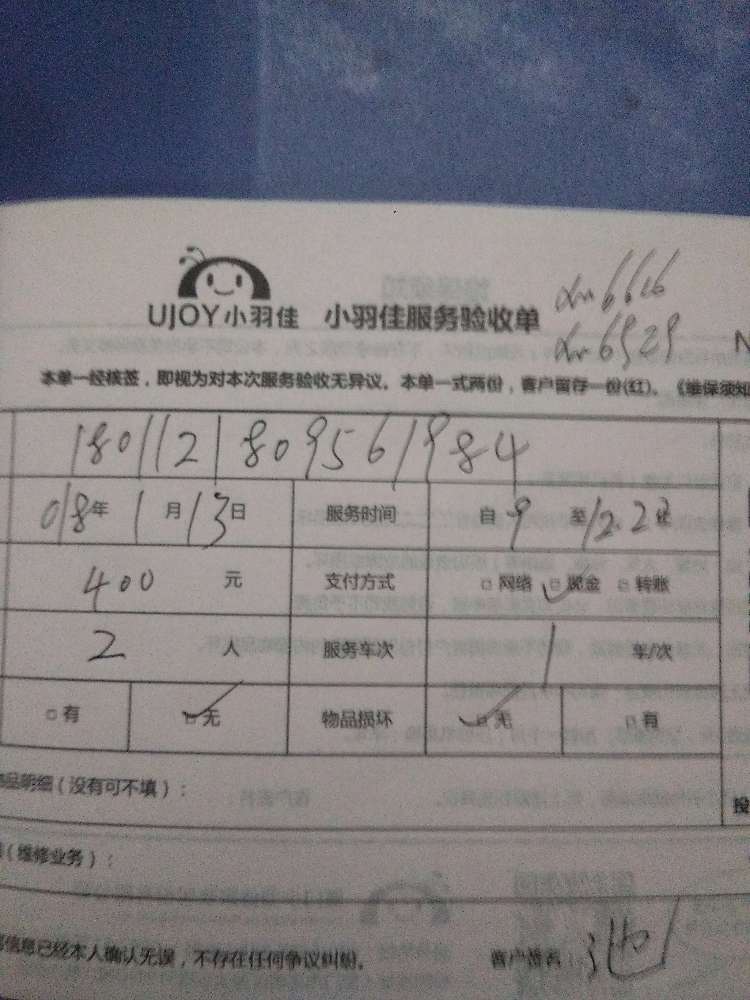 UJOY小羽佳 小羽佳服务验收单
本单一经核签，即视为对本次服务验收无异议。本单一式两份，客户留存一份(红)。《维保须知
1801121809561984
018年1月13日 服务时间 自9至12.20
400元 支付方式 □网络 □现金 □转账
2人 服务车次 1车/次
□有 □无 物品损坏 □无 □有
品明细（没有可不填）：
（维修业务）：
信息已经本人确认无误，不存在任何争议纠纷。 客户签名：